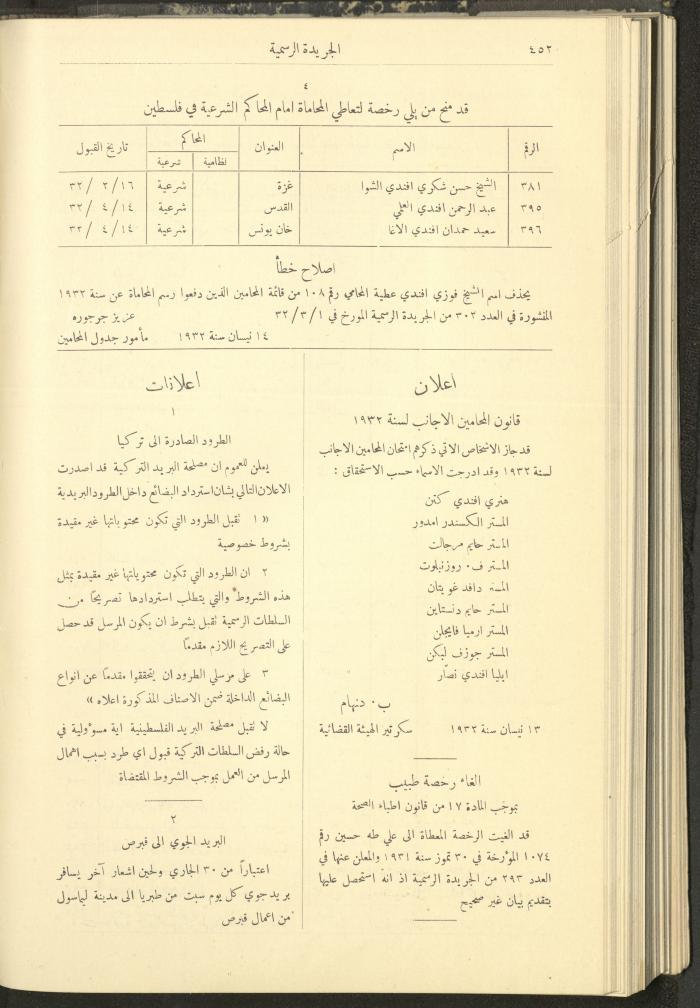 ٤٥٢
الجريدة الرسمية
٤
قد منح من يلي رخصة لتعاطي المحاماة امام المحاكم الشرعية في فلسطين
الرقم الاسم العنوان المحاكم تاريخ القبول
نظامية شرعية
٣٨١ الشيخ حسن شكري افندي الشوا غزة شرعية ١٦/ ٢ /٣٢
٣٩٥ عبد الرحمن افندي العلمي القدس شرعية ١٤/ ٤ /٣٢
٣٩٦ سعيد حمدان افندي الاغا خان يونس شرعية ١٤/ ٤ /٣٢
اصلاح خطأ
يحذف اسم الشيخ فوزي افندي عطية المحامي رقم ١٠٨ من قائمة المحامين الذين دفعوا رسم المحاماة عن سنة ١٩٣٢
المنشورة في العدد ٣٠٢ من الجريدة الرسمية المورخ في ١/ ٣/ ٣٢ عزيز جرجوره
١٤ نيسان سنة ١٩٣٢ مأمور جدول المحامين
اعلان
قانون المحامين الاجانب لسنة ١٩٣٢
قد جاز الاشخاص الاتي ذكرهم امتحان المحامين الاجانب
لسنة ١٩٣٢ وقد ادرجت الاسماء حسب الاستحقاق :
هنري افندي كتن
المستر الكسندر امدور
المستر حايم مرجالت
المستر ف. روزنبلوت
المستر دافد غويتان
المستر حايم دنستاين
المستر ارميا فايجلن
المستر جوزف ليكن
ايليا افندي نصّار
ب. دنهام
١٣ نيسان سنة ١٩٣٢ سكرتير الهيئة القضائية
الغاء رخصة طبيب
بموجب المادة ١٧ من قانون اطباء الصحة
قد الغيت الرخصة المعطاة الى علي طه حسين رقم
١٠٧٤ المؤرخة في ٣٠ تموز سنة ١٩٣١ والمعلن عنها في
العدد ٢٩٣ من الجريدة الرسمية اذ انه استحصل عليها
بتقديم بيان غير صحيح
اعلانات
١
الطرود الصادرة الى تركيا
يعلن للعموم ان مصلحة البريد التركية قد اصدرت
الاعلان التالي بشان استرداد البضائع داخل الطرود البريدية
«١ تقبل الطرود التي تكون محتوياتها غير مقيدة
بشروط خصوصية
٢ ان الطرود التي تكون محتوياتها غير مقيدة بمثل
هذه الشروط والتي يتطلب استردادها تصريحًا من
السلطات الرسمية تقبل بشرط ان يكون المرسل قد حصل
على التصريح اللازم مقدمًا
٣ على مرسلي الطرود ان يتحققوا مقدمًا عن انواع
البضائع الداخلة ضمن الاصناف المذكورة اعلاه»
لا تقبل مصلحة البريد الفلسطينية اية مسوٴولية في
حالة رفض السلطات التركية قبول اي طرد بسبب اهمال
المرسل من العمل بموجب الشروط المقتضاة
٢
البريد الجوي الى قبرص
اعتباراً من ٣٠ الجاري ولحين اشعار آخر يسافر
بريد جوي كل يوم سبت من طبريا الى مدينة ليماسول
من اعمال قبرص